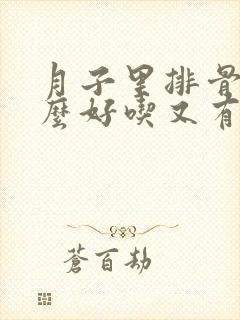 月子里排骨
麼好喫又有
蒼百劫